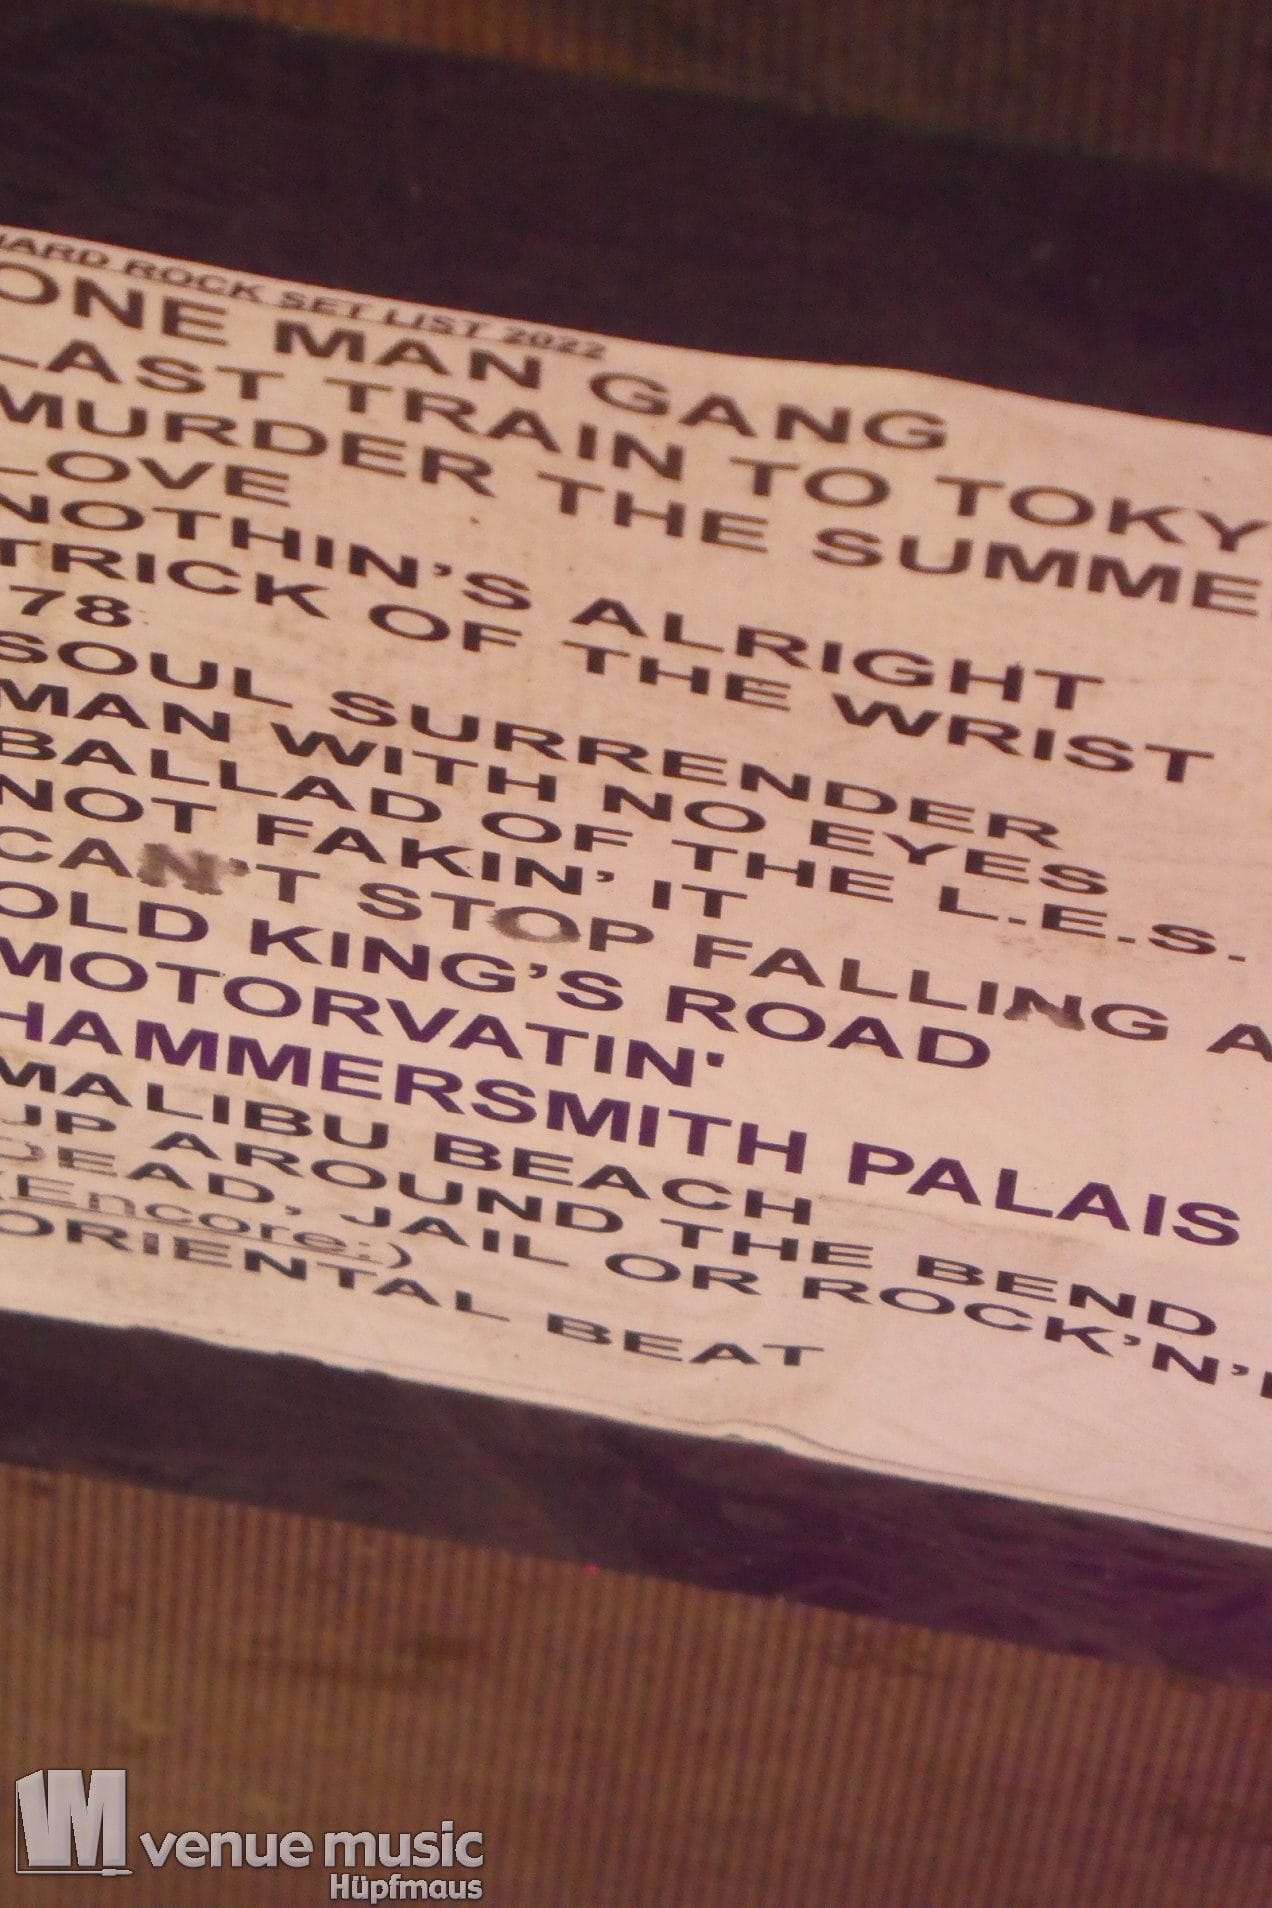 HARD ROCK SET LIST 2022
ONE MAN GANG
LAST TRAIN TO TOKY
MURDER THE SUMME
LOVE
NOTHIN'S ALRIGHT
TRICK OF THE WRIST
'78
SOUL SURRENDER
MAN WITH NO EYES
BALLAD OF THE L.E.S.
NOT FAKIN' IT
CAN'T STOP FALLING A
OLD KING'S ROAD
MOTORVATIN'
HAMMERSMITH PALAIS
MALIBU BEACH
UP AROUND THE BEND
DEAD, JAIL OR ROCK'N'
(Encore:)
ORIENTAL BEAT
VM venue music
Hüpfmaus